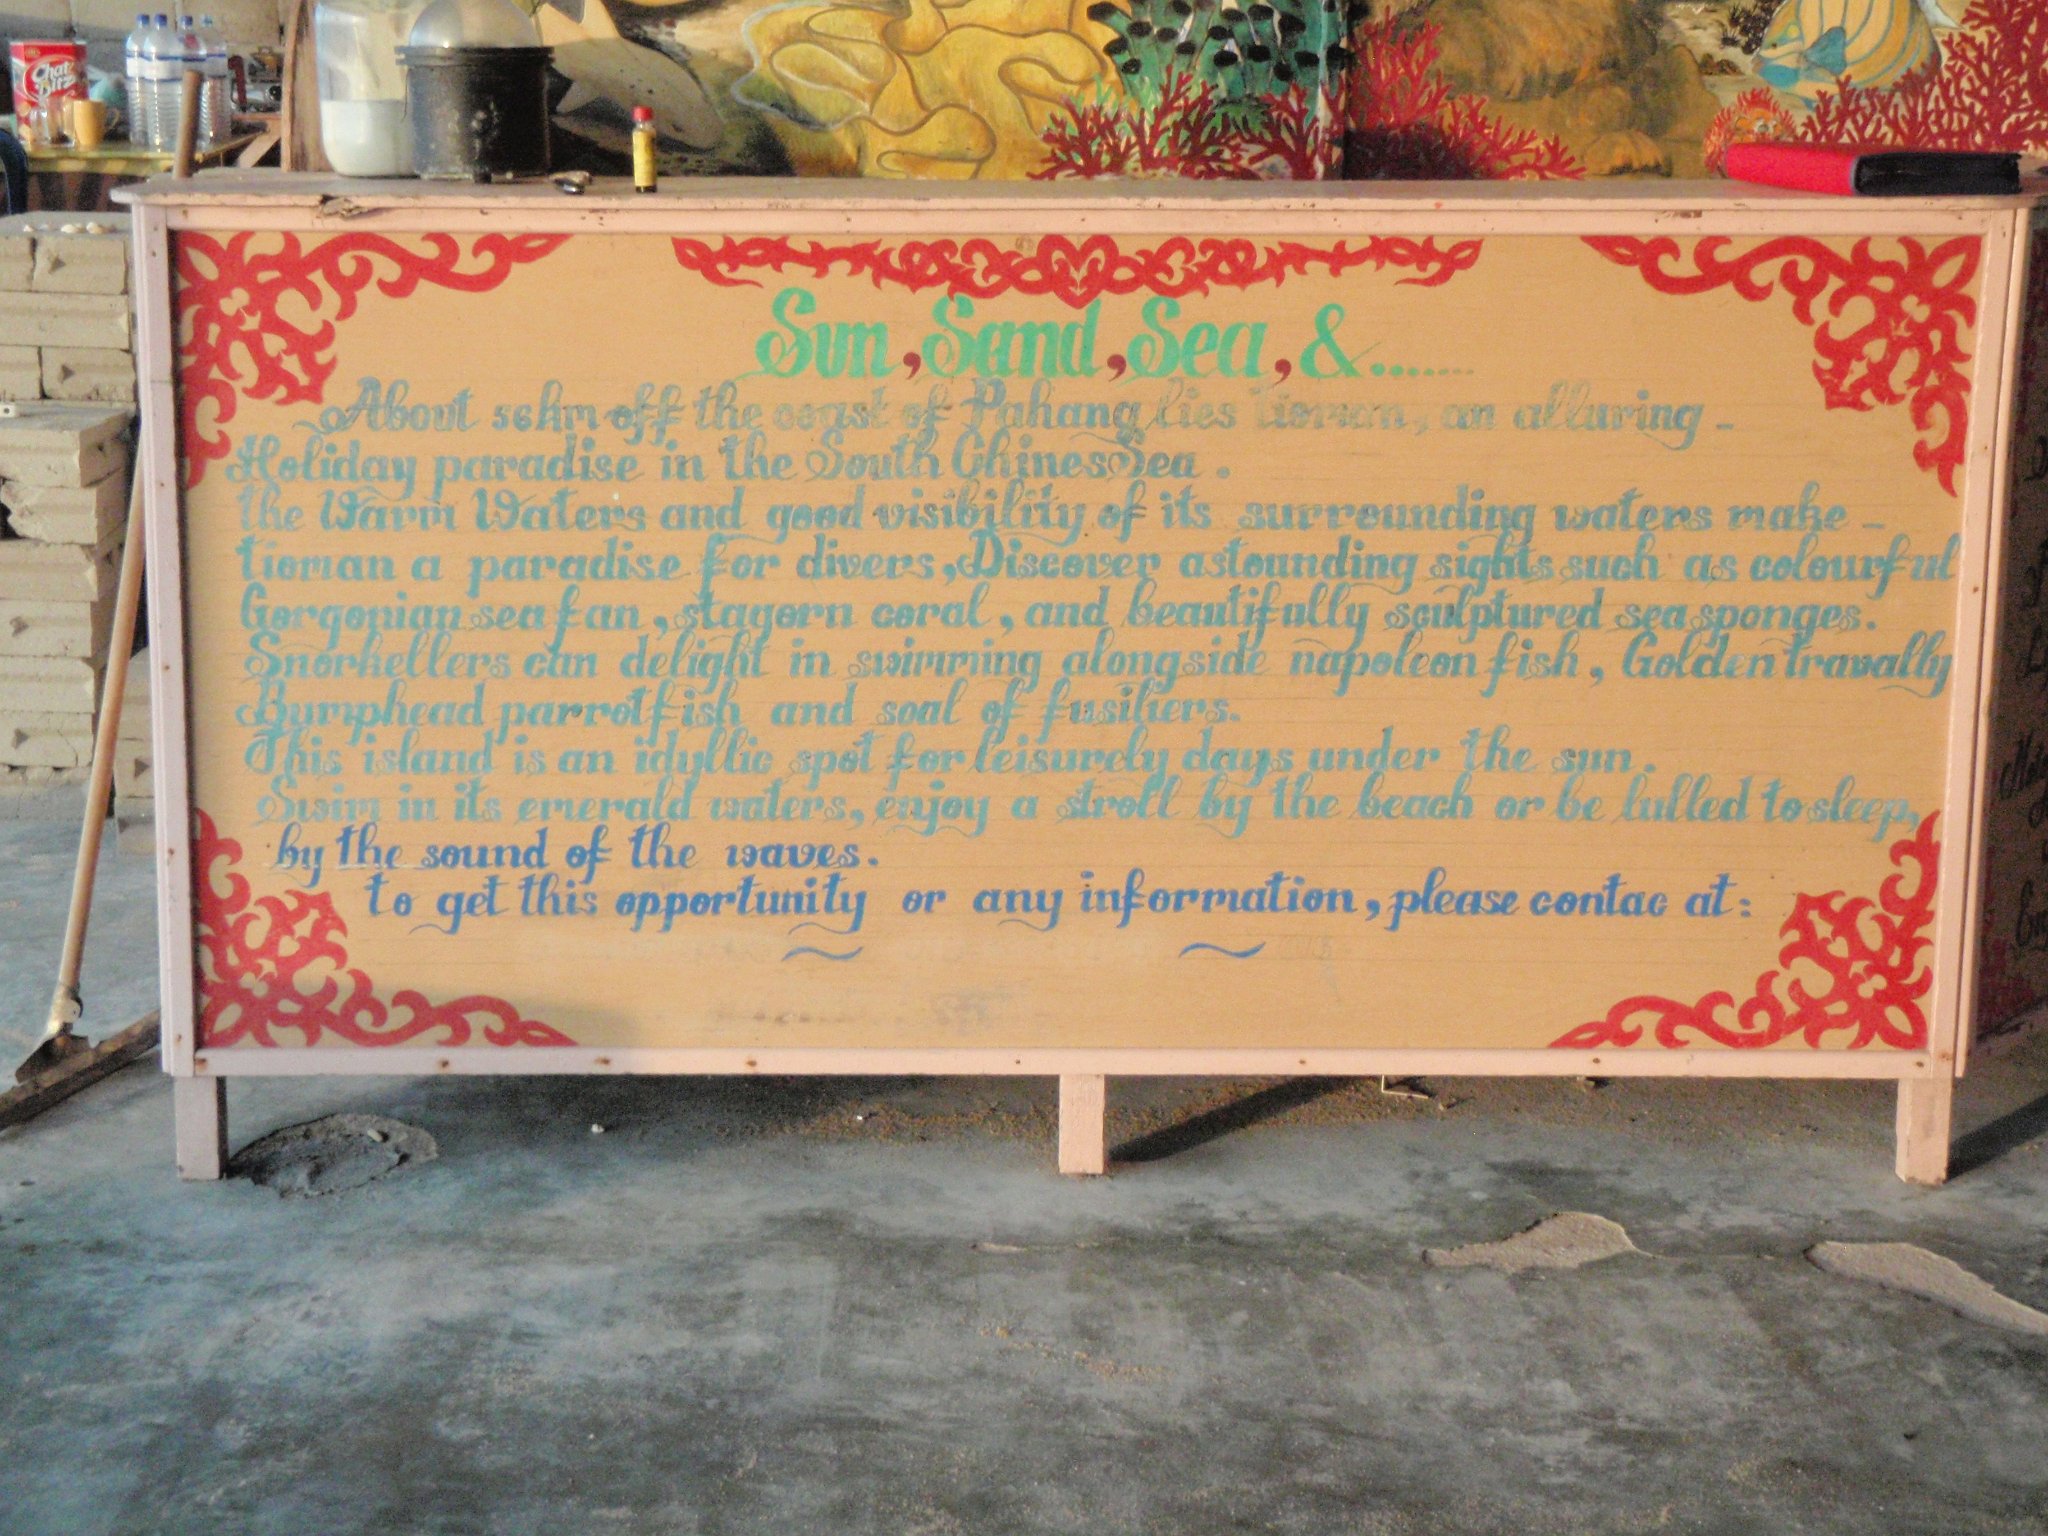 Sun, Sand, Sea, &.......
About 56km off the coast of Pahang lies tioman, an alluring -
Holiday paradise in the South Chines Sea .
the Warm Waters and good visibility of its surrounding waters make -
tioman a paradise for divers, Discover astounding sights such as colourful
Gorgonian sea fan, stagorn coral, and beautifully sculptured sea sponges.
Snorkellers can delight in swimming alongside napoleon fish, Golden travally
Bumphead parrotfish and soal of fusiliers.
This island is an idyllic spot for leisurely days under the sun.
Swim in its emerald waters, enjoy a stroll by the beach or be lulled to sleep,
by the sound of the waves.
to get this opportunity or any information, please contac at: